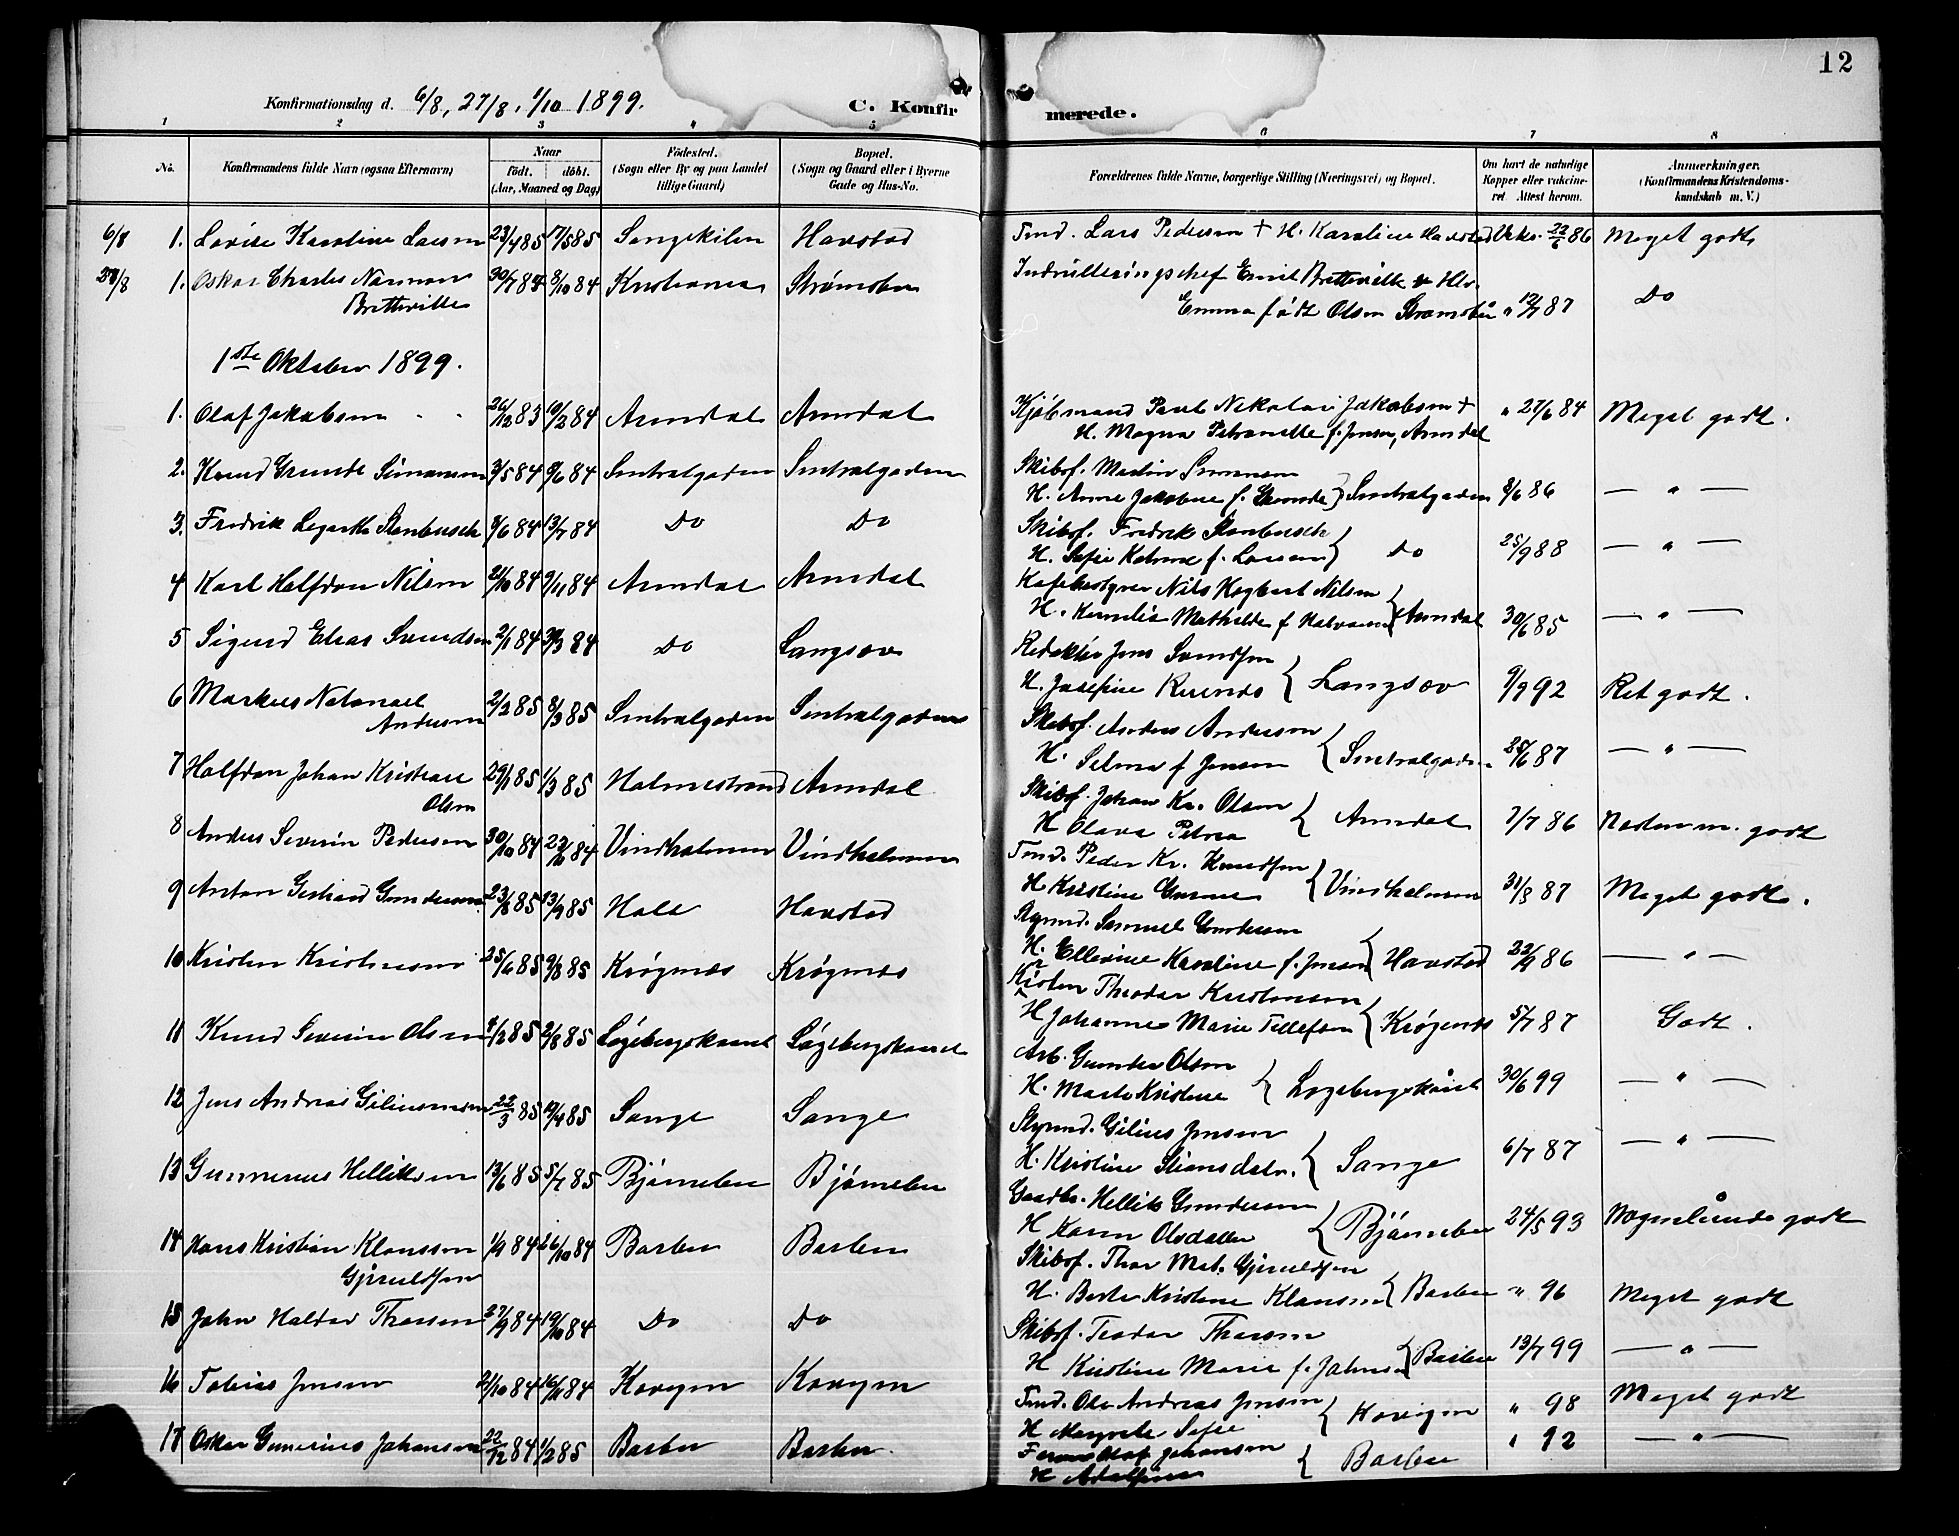 12
Konfirmationsdag d. 6/8, 27/8, 1/10 1899.
C. Konfirmerede.
1 2 3 4 5 6 7 8
No.
Konfirmandens fulde Navn (ogsaa Efternavn)
Naar
født. døbt.
(Aar, Maaned og Dag)
Fødested.
(Sogn eller By og paa Landet
tillige Gaard)
Bopæl.
(Sogn og Gaard eller i Byerne
Gade og Hus-No.
Forældrenes fulde Navne, borgerlige Stilling (Næringsvei) og Bopæl.
Om havt de naturlige
Kopper eller vakcine-
ret Attest herom.
Anmærkninger.
(Konfirmandens Kristendoms-
kundskab m. V.)
6/8 1. Lovise Karoline Larsen 23/4 85 17/5 85 Songekilen Havstad Tmd. Lars Pedersen + H. Karoline Havstad Vakc. 22/6 86 Meget godt
27/8 1. Oskar Charles Norman 30/7 84 8/10 84 Kristiania Strømsbu Indrulleringschef Emil Bretteville & Hu.
Bretteville Emma født Olsen Strømsbu " 12/7 87 Do
1ste Oktober 1899.
1. Olaf Jakobsen 26/12 83 10/2 84 Arendal Arendal Kjøbmand Paul Nikolai Jakobsen + " 27/6 84 Meget godt.
H. Magna Petronelle f. Jensen, Arendal
2. Knud Grunde Simonsen 3/5 84 9/6 84 Sentralgaden Sentralgaden Skibsf. Martin Simonsen
H. Anne Jakobine f. Grunde Sentralgaden 8/6 86 — " —
3. Fredrik Legarth Stenbusch 8/6 84 13/7 84 Do Do Skibsf. Fredrik Stenbusch
H. Sofie f. Larsen Do 25/9 88 — " —
4 Karl Halfdan Nilsen 2/10 84 9/11 84 Arendal Arendal Nils Nilsen
H. Kornelia Mathilde f. Halvorsen Arendal 30/6 85 — " —
5 Sigurd Elias Svendsen 2/1 84 30/3 84 Do Langsæv Redaktør Jens Svendsen
H. Josefine Langsæv 9/9 92 Ret godt.
6 Markus Natanael 2/2 85 8/3 85 Sentralgaden Sentralgaden
Andersen Skibsf. Anders Andersen
H. Selma f Jensen Sentralgaden 28/6 87 — " —
7 Halfdan Johan Kristian 29/1 85 1/3 85 Holmestrand Arendal
Olsen Skibsf. Johan Kr. Olsen
H Olava Petrea Arendal 7/7 86 Næsten m. godt
8 Anders Severin Pedersen 30/10 84 Vindholmen Vindholmen Tmd. Peder Kr. Knudsen
H Kristine Vindholmen 31/3 87 Meget godt.
9 Anton Gerhard Gundersen 23/8 85 13/9 85 Hale Havstad Samuel Gundersen
H. Ellevine Karoline f. Jensen Havstad 22/9 86 — " —
10 Kristen Kristensen 25/6 85 9/8 85 Krøgenes Krøgenes Kristen Theodor Kristensen
H Johanne Marie Tellefsen Krøgenes 5/7 87 Godt.
11 Knud Severin Olsen 1/2 85 2/8 85 Løgebergskaaret Løgebergskaaret Arb. Gunder Olsen
H. Marte Kristine Løgebergskåret 30/6 99 — " —
12 Jens Andreas Giliusensen 22/3 85 19/4 85 Songe Songe Gilius Jensen
H. Kristine Songe 6/7 87 — " —
13 Gunnerius Helliksen 13/6 85 5/7 85 Bjørnebu Bjørnebu Gaardbr. Hellik Gundersen
H Karen Olsdatter Bjørnebu 24/5 93 Nogenlunde godt
14 Hans Kristian Klausen 1/9 84 26/10 84 Barbu Barbu
Gjeruldsen Skibsf. Thor Mat. Gjeruldsen
H. Berte Kristine Klausen Barbu " 96 Meget godt
15 John Haldor Thorsen 27/9 84 19/10 84 Do Do Skibsf. Teodor Thorsen
H Kirstine Marie f. Johnsen Barbu 13/7 99 — " —
16 Tobias Jensen 2/10 84 16/11 84 Kovigen Kovigen Tmd. Ole Andreas Jensen Kovigen " 98 Meget godt
H Margrete Sofie
17 Oskar Gunerius Johansen 22/12 84 1/2 85 Barbu Barbu. Olaf Johansen Barbu " 92 — " —
H Adolfine